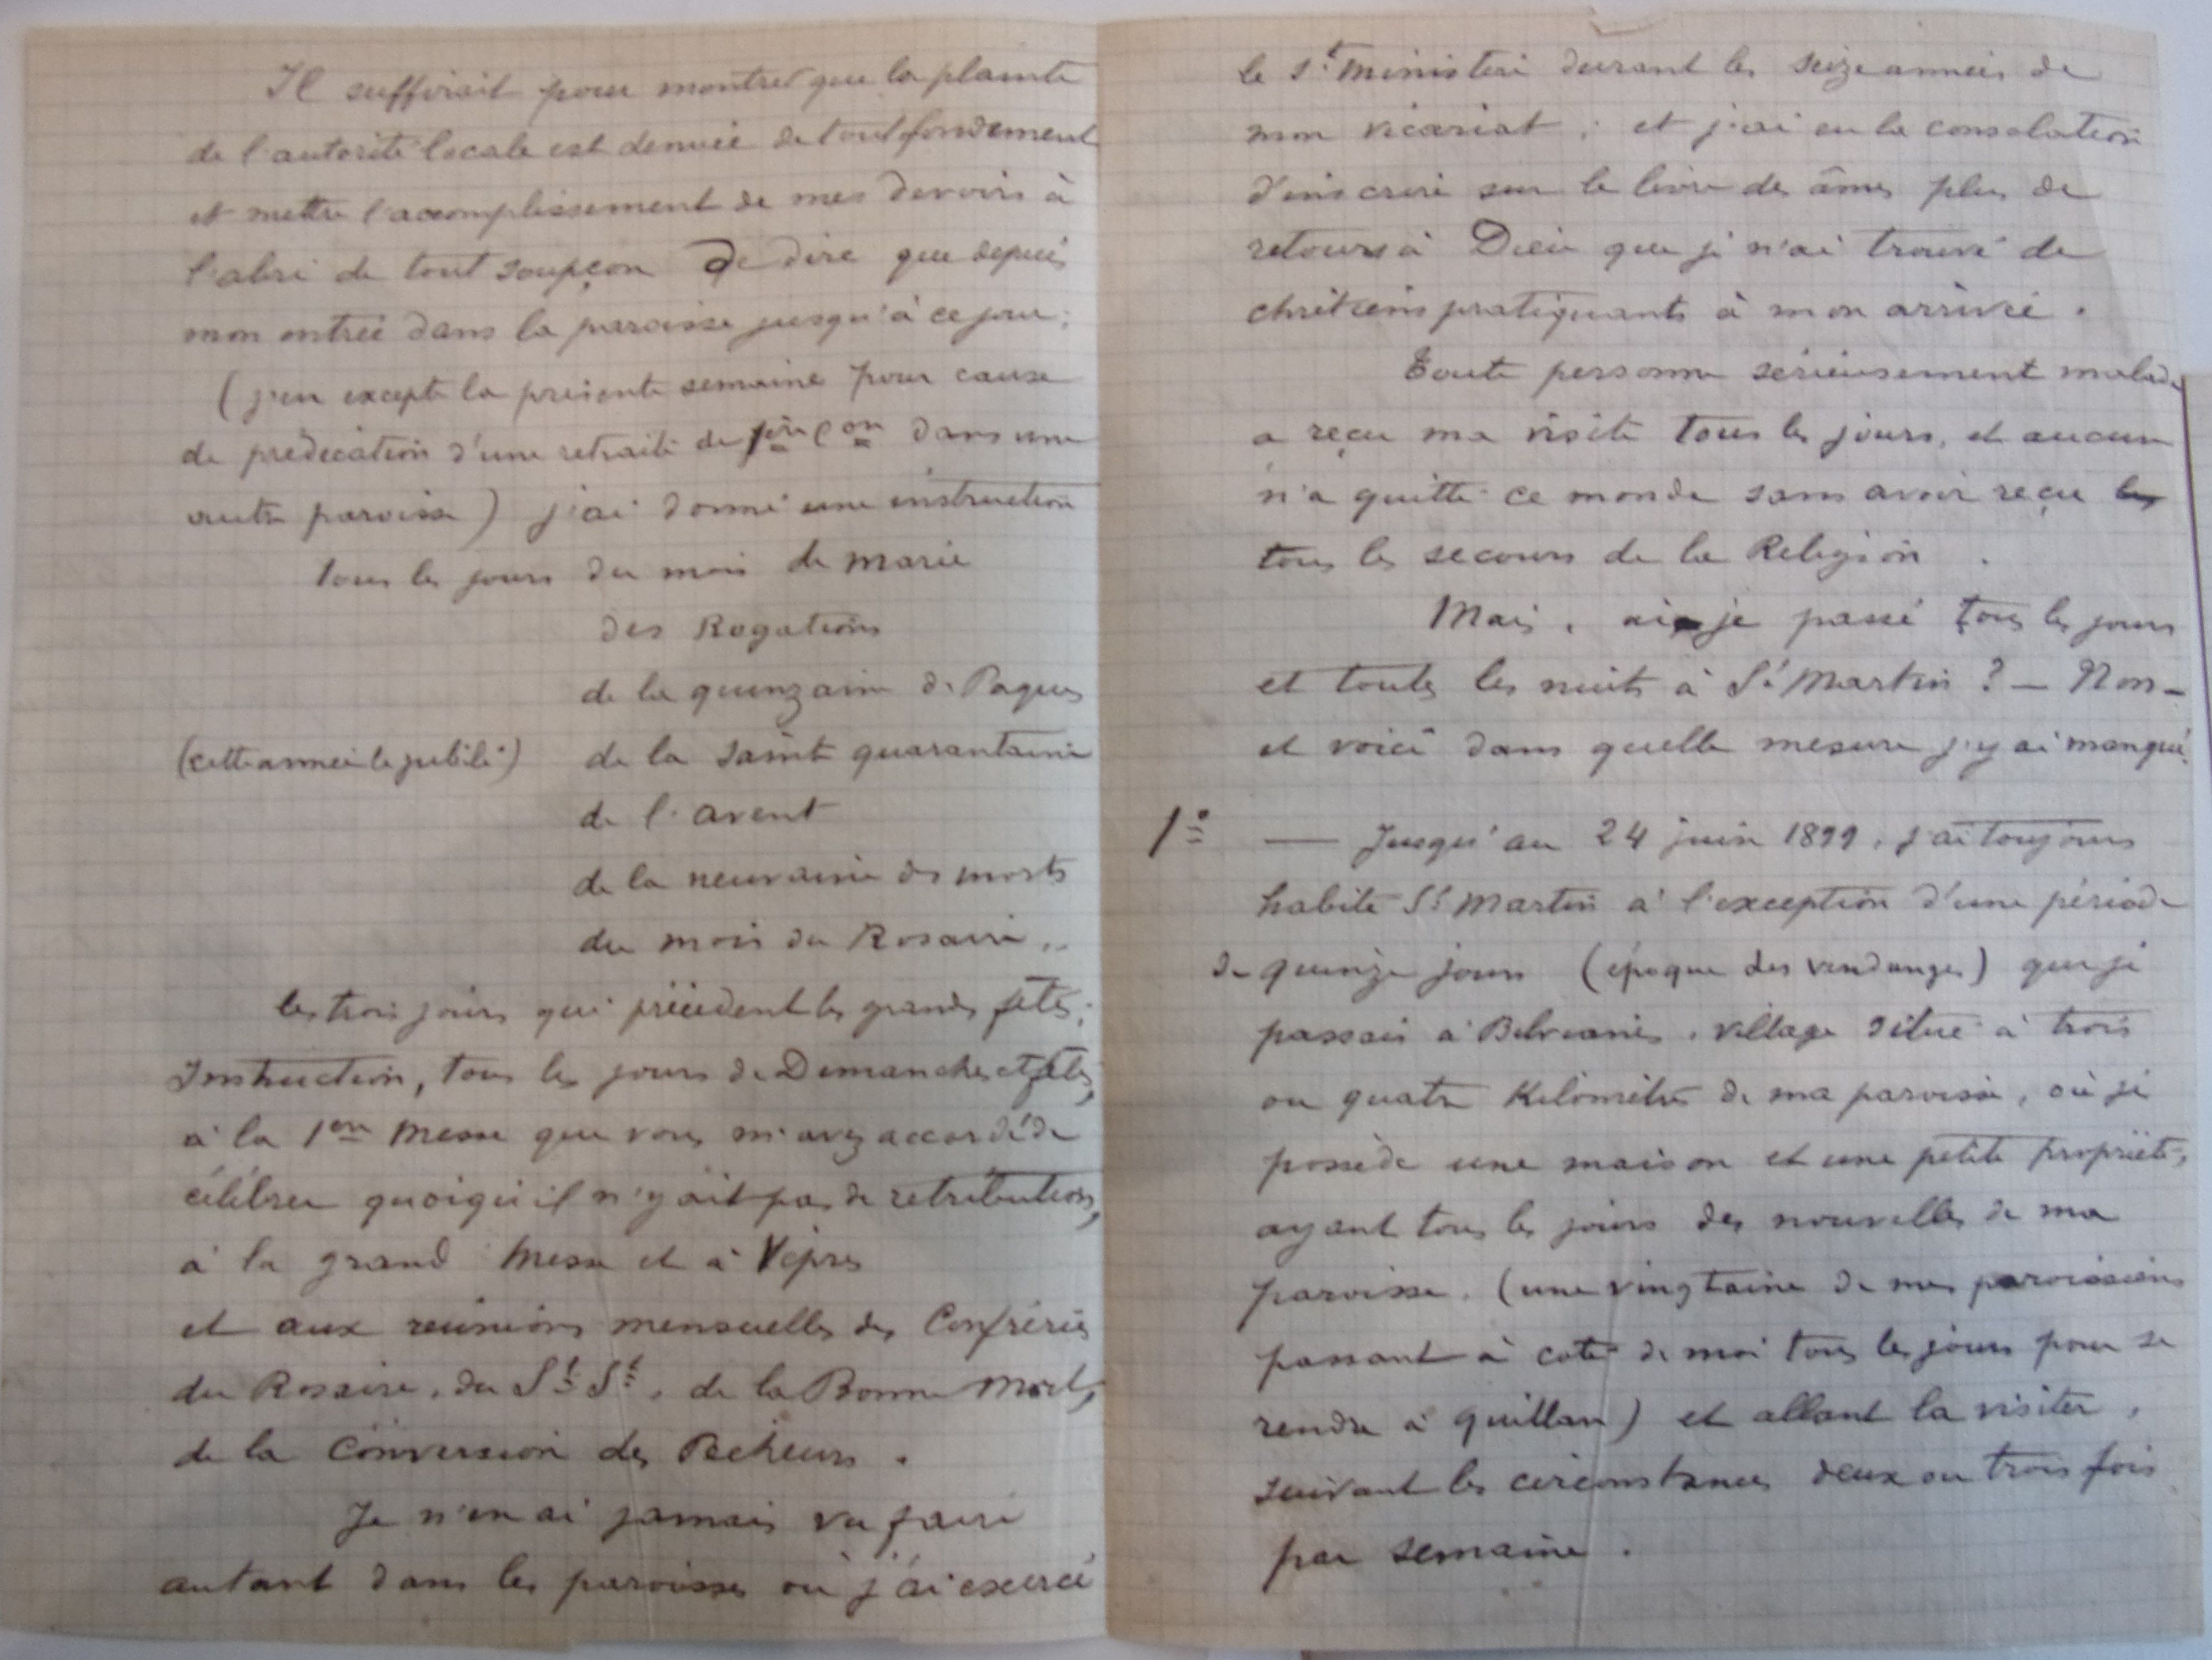 Il suffirait pour montrer que la plainte
de l'autorité locale est denuée de tout fondement
et mettre l'accomplissement de mes devoirs à
l'abri de tout soupçon de dire que depuis
mon entrée dans la paroisse jusqu'à ce jour,
(j'en excepte la présente semaine pour cause
de prédication d'une retraite de 1ère Con dans une
autre paroisse) j'ai donné une instruction
tous les jours du mois de marie
des Rogations
de la quinzaine de Paques
(cette année le jubilé) de la sainte quarantaine
de l'avent
de la neuvaine des morts
du mois du Rosaire..
les trois jours qui précedent les grandes fêtes;
Instruction, tous les jours de Dimanches et fêtes,
à la 1ere Messe que vous m'avez accordé de
célébrer quoiqu'il n'y ait pas de retribution,
à la grand Messe et à Vêpres
et aux reunions mensuelles des Confréries
du Rosaire, du St St, de la Bonne Mort,
de la Conversion des Pecheurs.
Je n'en ai jamais vu faire
autant dans les paroisses où j'ai exercé
le St Ministère durant les seize années de
mon vicariat; et j'ai eu la consolation
d'inscrire sur le livre des âmes plus de
retours à Dieu que je n'ai trouvé de
chrétiens pratiquants à mon arrivée.
Toute personne sérieusement malade
a reçu ma visite tous les jours, et aucun
n'a quitté ce monde sans avoir reçu les
tous les secours de la Religion.
Mais, ai-je passé tous les jours
et toutes les nuits à St Martin? — Non —
et voici dans quelle mesure j'y ai manqué.
1° — Jusqu'au 24 juin 1899, j'ai toujours
habité St Martin à l'exception d'une période
de quinze jours (époque des vendanges) que je
passais à Belvianes, village situé à trois
ou quatre Kilomètres de ma paroisse, où je
possède une maison et une petite propriété,
ayant tous les jours des nouvelles de ma
paroisse, (une vingtaine de mes paroissiens
passant à coté de moi tous les jours pour se
rendre à quillan) et allant la visiter,
suivant les circonstances deux ou trois fois
par semaine.